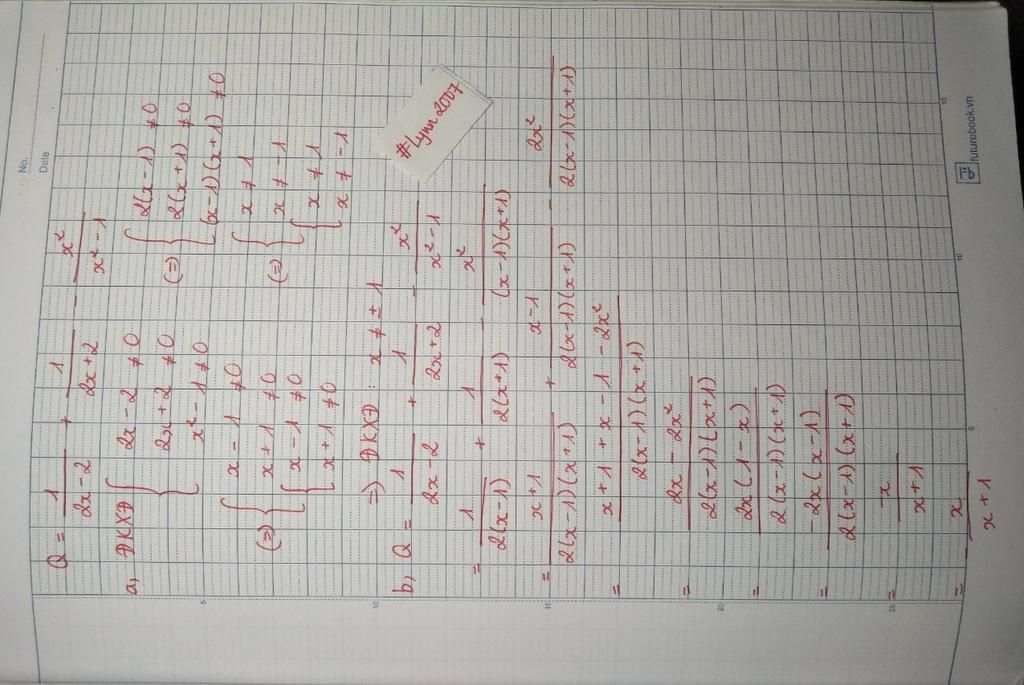 No.
Date
Q = 1/(2x-2) + 1/(2x+2) - x²/(x²-1)
a, ĐKXĐ { 2x-2 ≠ 0 (=) { 2(x-1) ≠ 0
2x+2 ≠ 0 2(x+1) ≠ 0
x²-1 ≠ 0 (x-1)(x+1) ≠ 0
(=) { x-1 ≠ 0 (=) { x ≠ 1
x+1 ≠ 0 x ≠ -1
{ x-1 ≠ 0 { x ≠ 1
x+1 ≠ 0 x ≠ -1
=) ĐKXĐ: x ≠ ± 1
#Lynn2007
b, Q = 1/(2x-2) + 1/(2x+2) - x²/(x²-1)
= 1/(2(x-1)) + 1/(2(x+1)) - x²/((x-1)(x+1))
= (x+1)/(2(x-1)(x+1)) + (x-1)/(2(x-1)(x+1)) - 2x²/(2(x-1)(x+1))
= (x+1+x-1-2x²)/(2(x-1)(x+1))
= (2x-2x²)/(2(x-1)(x+1))
= 2x(1-x)/(2(x-1)(x+1))
= -2x(x-1)/(2(x-1)(x+1))
= -x/(x+1)
= - x/(x+1)
5
10
15
20
25
5
10
15
futurebook.vn